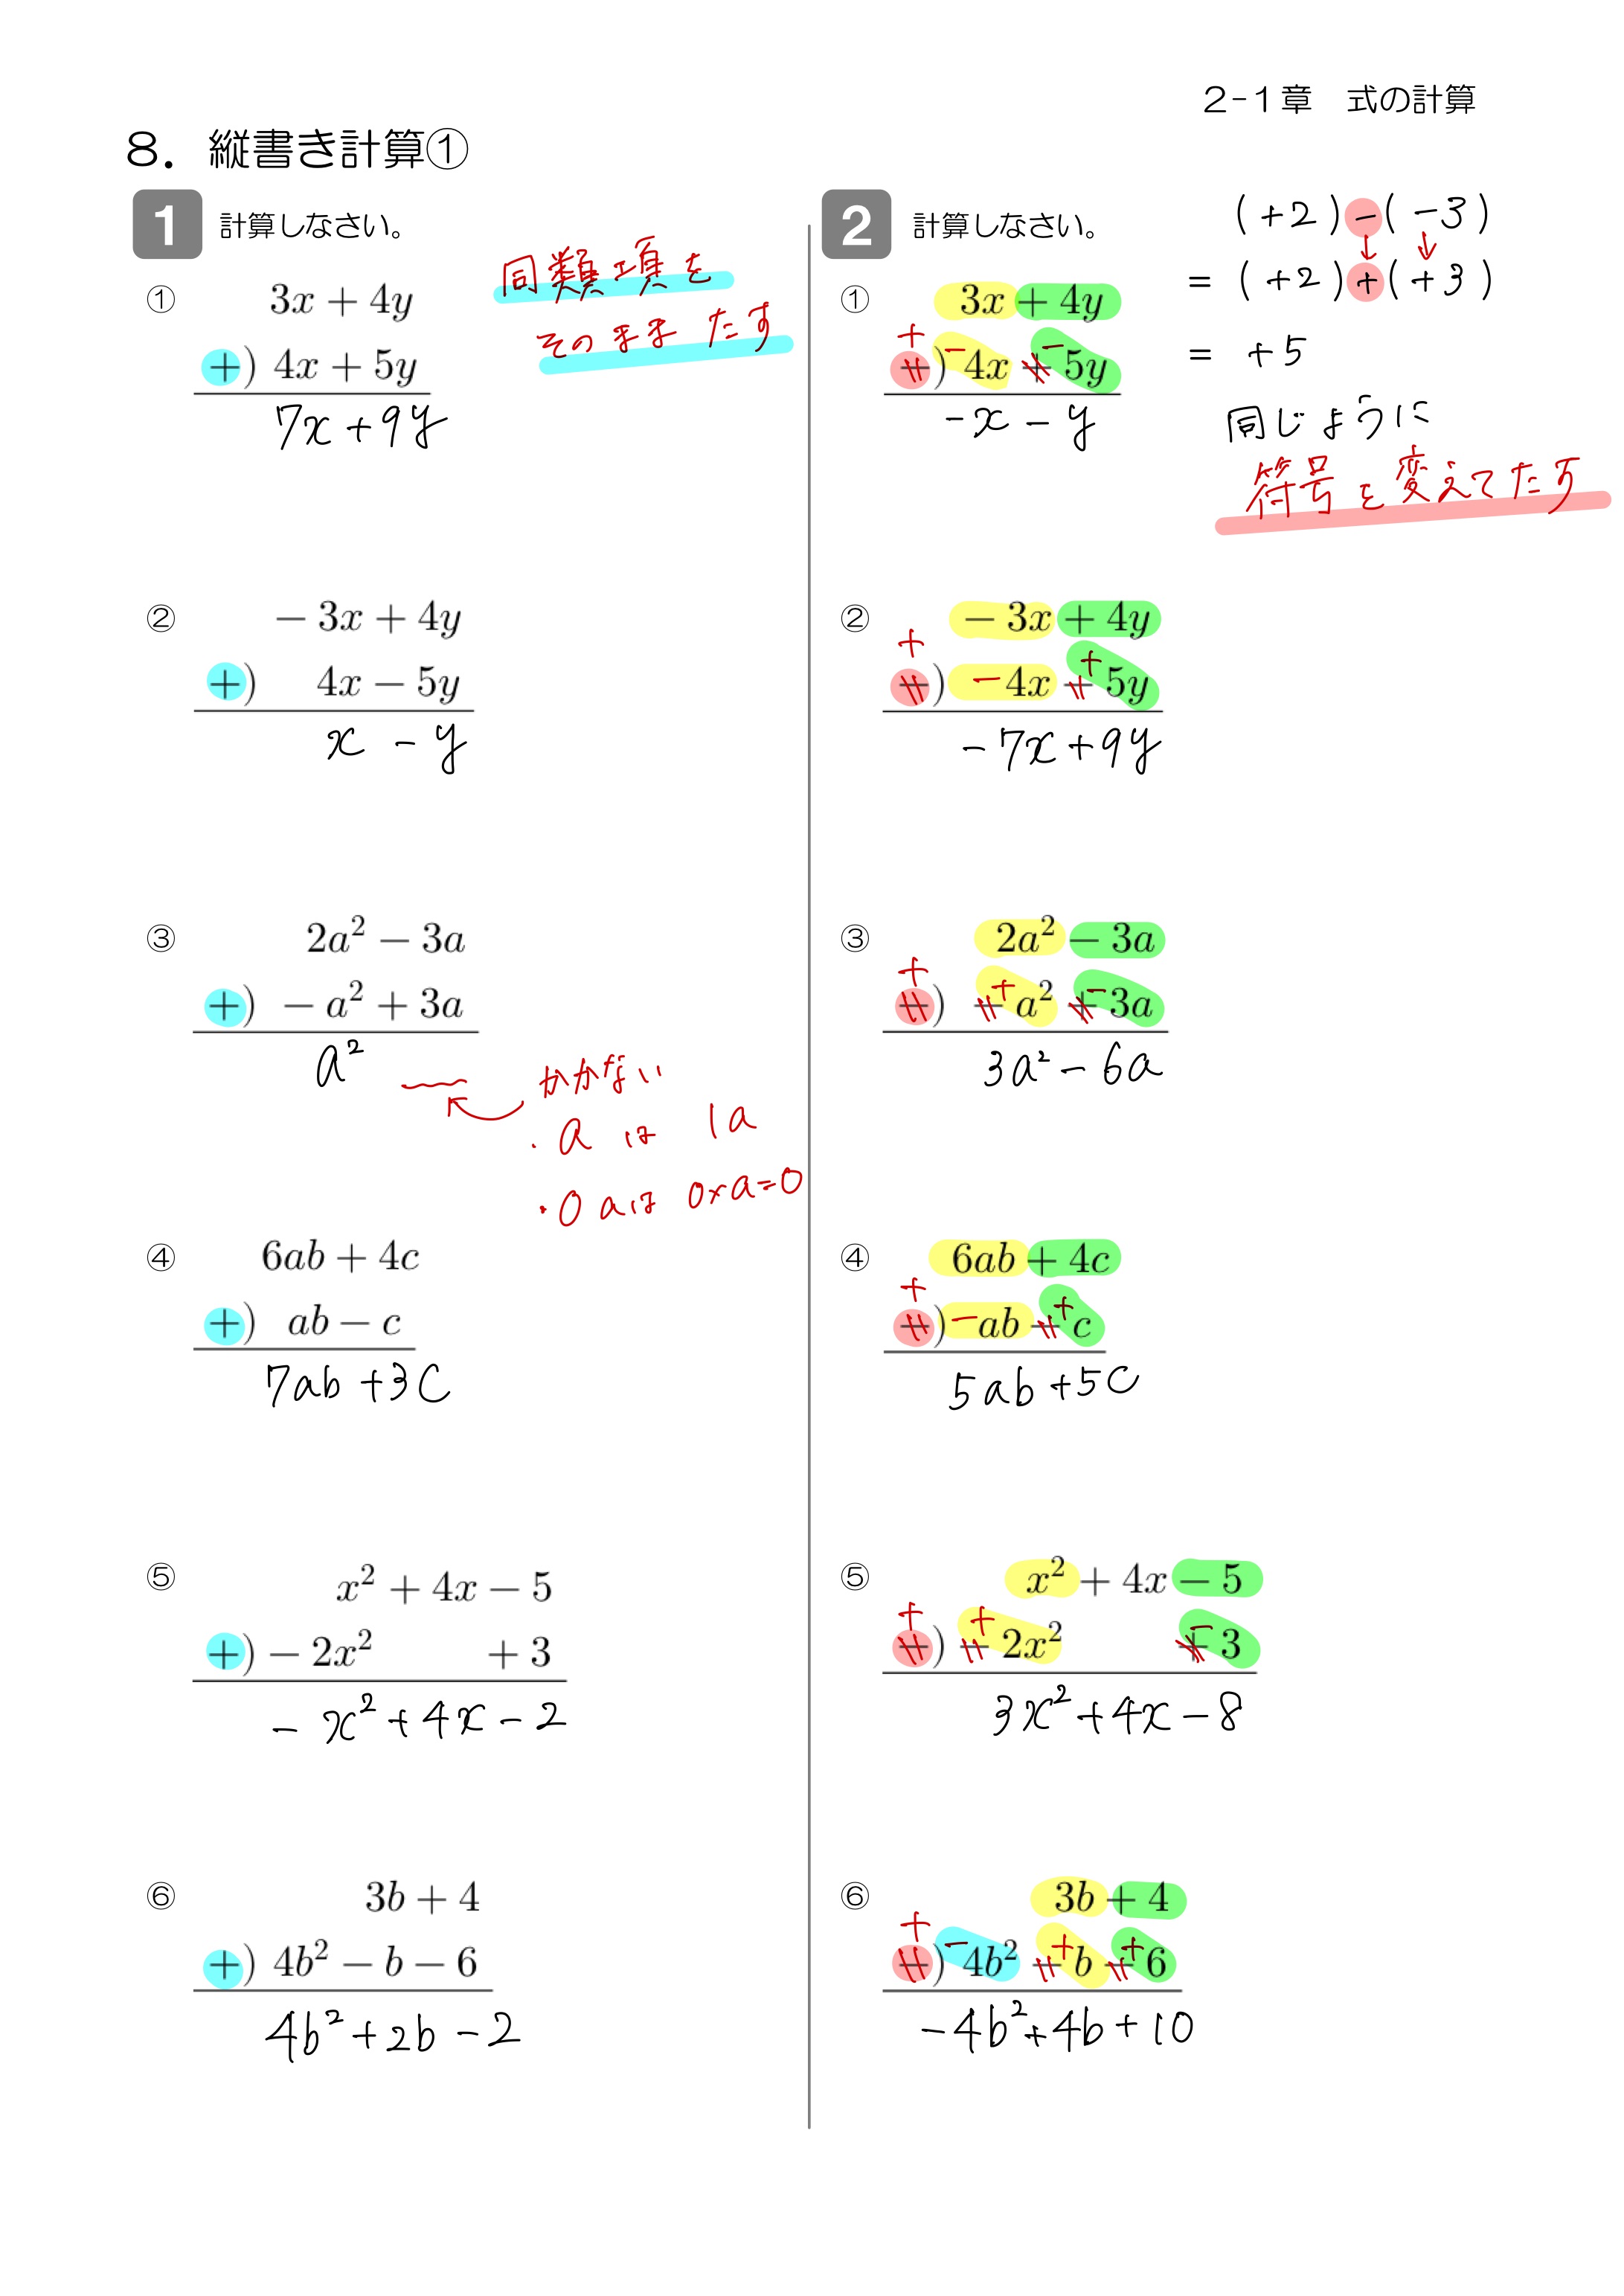 2-1章　式の計算
8．縦書き計算①
1 計算しなさい。
同類項を
そのままたす
① 3x + 4y
+) 4x + 5y
7x + 9y
② − 3x + 4y
+) 4x − 5y
x − y
③ 2a² − 3a
+) − a² + 3a
a²
かかない
・a は 1a
・0aは 0×a=0
④ 6ab + 4c
+) ab − c
7ab + 3c
⑤ x² + 4x − 5
+) − 2x² + 3
− x² + 4x − 2
⑥ 3b + 4
+) 4b² − b − 6
4b² + 2b − 2
2 計算しなさい。
(+2) − (−3)
= (+2) + (+3)
= +5
同じように
符号を変えてたす
① 3x + 4y
+
−) − 4x + − 5y
−x − y
② − 3x + 4y
+
−) − 4x − + 5y
−7x + 9y
③ 2a² − 3a
+
−) − + a² + − 3a
3a² − 6a
④ 6ab + 4c
+
−) − ab − + c
5ab + 5c
⑤ x² + 4x − 5
+
−) − + 2x² + − 3
3x² + 4x − 8
⑥ 3b + 4
+
−) − 4b² − + b − + 6
−4b² + 4b + 10